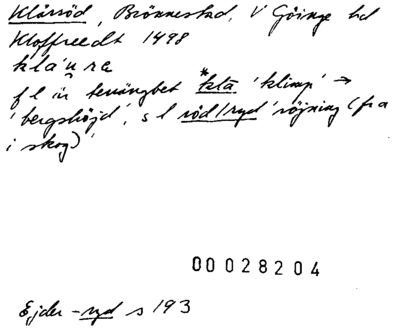 Klåröd, Brönnestad, V Göinge hd
Kloffreedt 1498
klå'u re
f l är terrängbet *klā 'klimp' →
'bergshöjd', s l röd/ryd 'röjning (fra
i skog)'
00028204
Ejder-ryd s 193